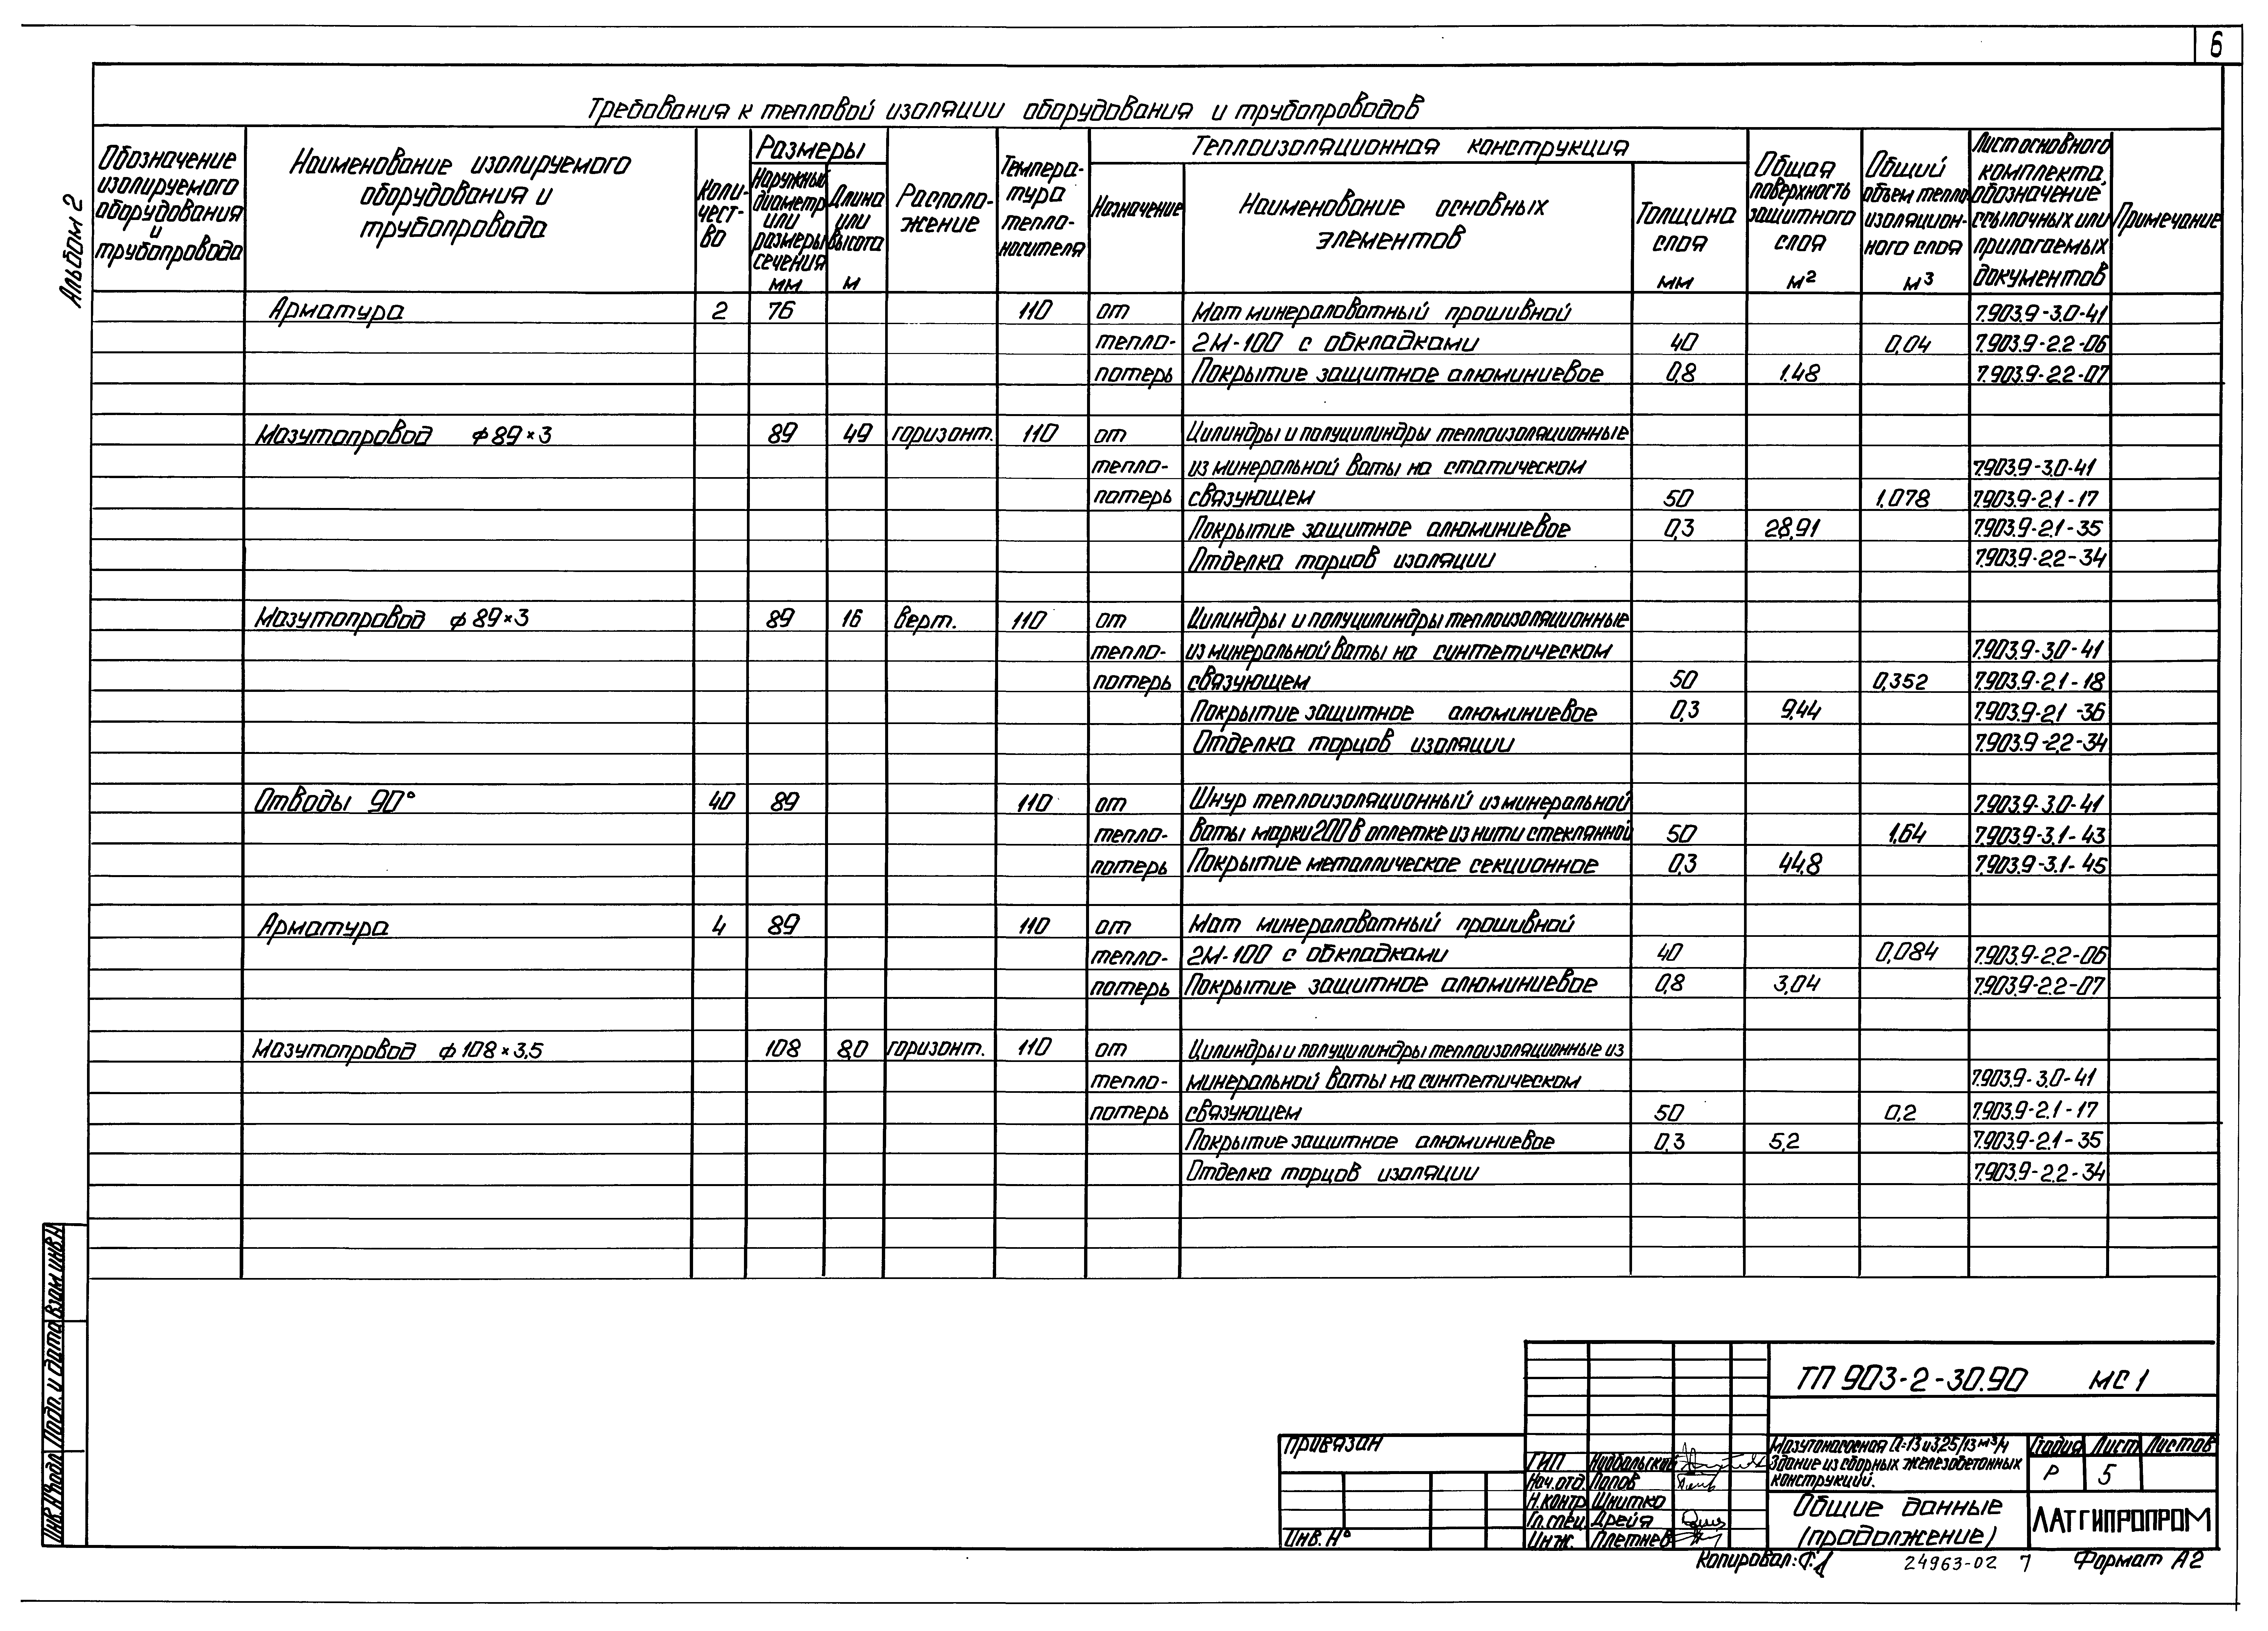 6
Альбом 2
Требования к тепловой изоляции оборудования и трубопроводов
Обозначение изолируемого оборудования и трубопровода
Наименование изолируемого оборудования и трубопровода
Количест-во
Размеры
Наружный диаметр или размеры сечения мм
Длина или высота м
Располо-жение
Темпера-тура тепло-носителя
Теплоизоляционная конструкция
Назначение
Наименование основных элементов
Толщина слоя мм
Общая поверхность защитного слоя м²
Общий объем тепло изоляцион-ного слоя м³
Лист основного комплекта, обозначение ссылочных или прилагаемых документов
Примечание
Арматура 2 76 110 от Мат минераловатный прошивной 7.903.9-3.0-41
тепло- 2М-100 с обкладками 40 0,04 7.903.9-2.2-06
потерь Покрытие защитное алюминиевое 0,8 1.48 7.903.9-2.2-07
Мазутопровод ф89×3 89 49 горизонт. 110 от Цилиндры и полуцилиндры теплоизоляционные
тепло- из минеральной ваты на статическом 7.903.9-3.0-41
потерь связующем 50 1,078 7.903.9-2.1-17
Покрытие защитное алюминиевое 0,3 28,91 7.903.9-2.1-35
Отделка торцов изоляции 7.903.9-2.2-34
Мазутопровод ф89×3 89 16 верт. 110 от Цилиндры и полуцилиндры теплоизоляционные
тепло- из минеральной ваты на синтетическом 7.903.9-3.0-41
потерь связующем 50 0,352 7.903.9-2.1-18
Покрытие защитное алюминиевое 0,3 9.44 7.903.9-2.1-36
Отделка торцов изоляции 7.903.9-2.2-34
Отводы 90° 40 89 110 от Шнур теплоизоляционный из минеральной 7.903.9-3.0-41
тепло- ваты марки 200 в оплетке из нити стеклянной 50 1,64 7.903.9-3.1-43
потерь Покрытие металлическое секционное 0,3 44,8 7.903.9-3.1-45
Арматура 4 89 110 от Мат минераловатный прошивной
тепло- 2М-100 с обкладками 40 0,084 7.903.9-2.2-06
потерь Покрытие защитное алюминиевое 0,8 3,04 7.903.9-2.2-07
Мазутопровод ф108×3,5 108 8,0 горизонт. 110 от Цилиндры и полуцилиндры теплоизоляционные из
тепло- минеральной ваты на синтетическом 7.903.9-3.0-41
потерь связующем 50 0,2 7.903.9-2.1-17
Покрытие защитное алюминиевое 0,3 5,2 7.903.9-2.1-35
Отделка торцов изоляции 7.903.9-2.2-34
Инв.№подл. Подп. и дата Взам инв.№
ТП 903-2-30.90 МС 1
Привязан
Инв. №
ГИП
Нач.отд. Попов
Н.контр Шнитко
Гл.спец. Дрейя
Инж. Плетнев
Мазутонасосная Q=13 и 3,25/13 м³/ч
Здание из сборных железобетонных
конструкций.
Стадия Лист Листов
Р 5
Общие данные
(продолжение)
ЛАТГИПРОПРОМ
Копировал:
24963-02 7
Формат А2